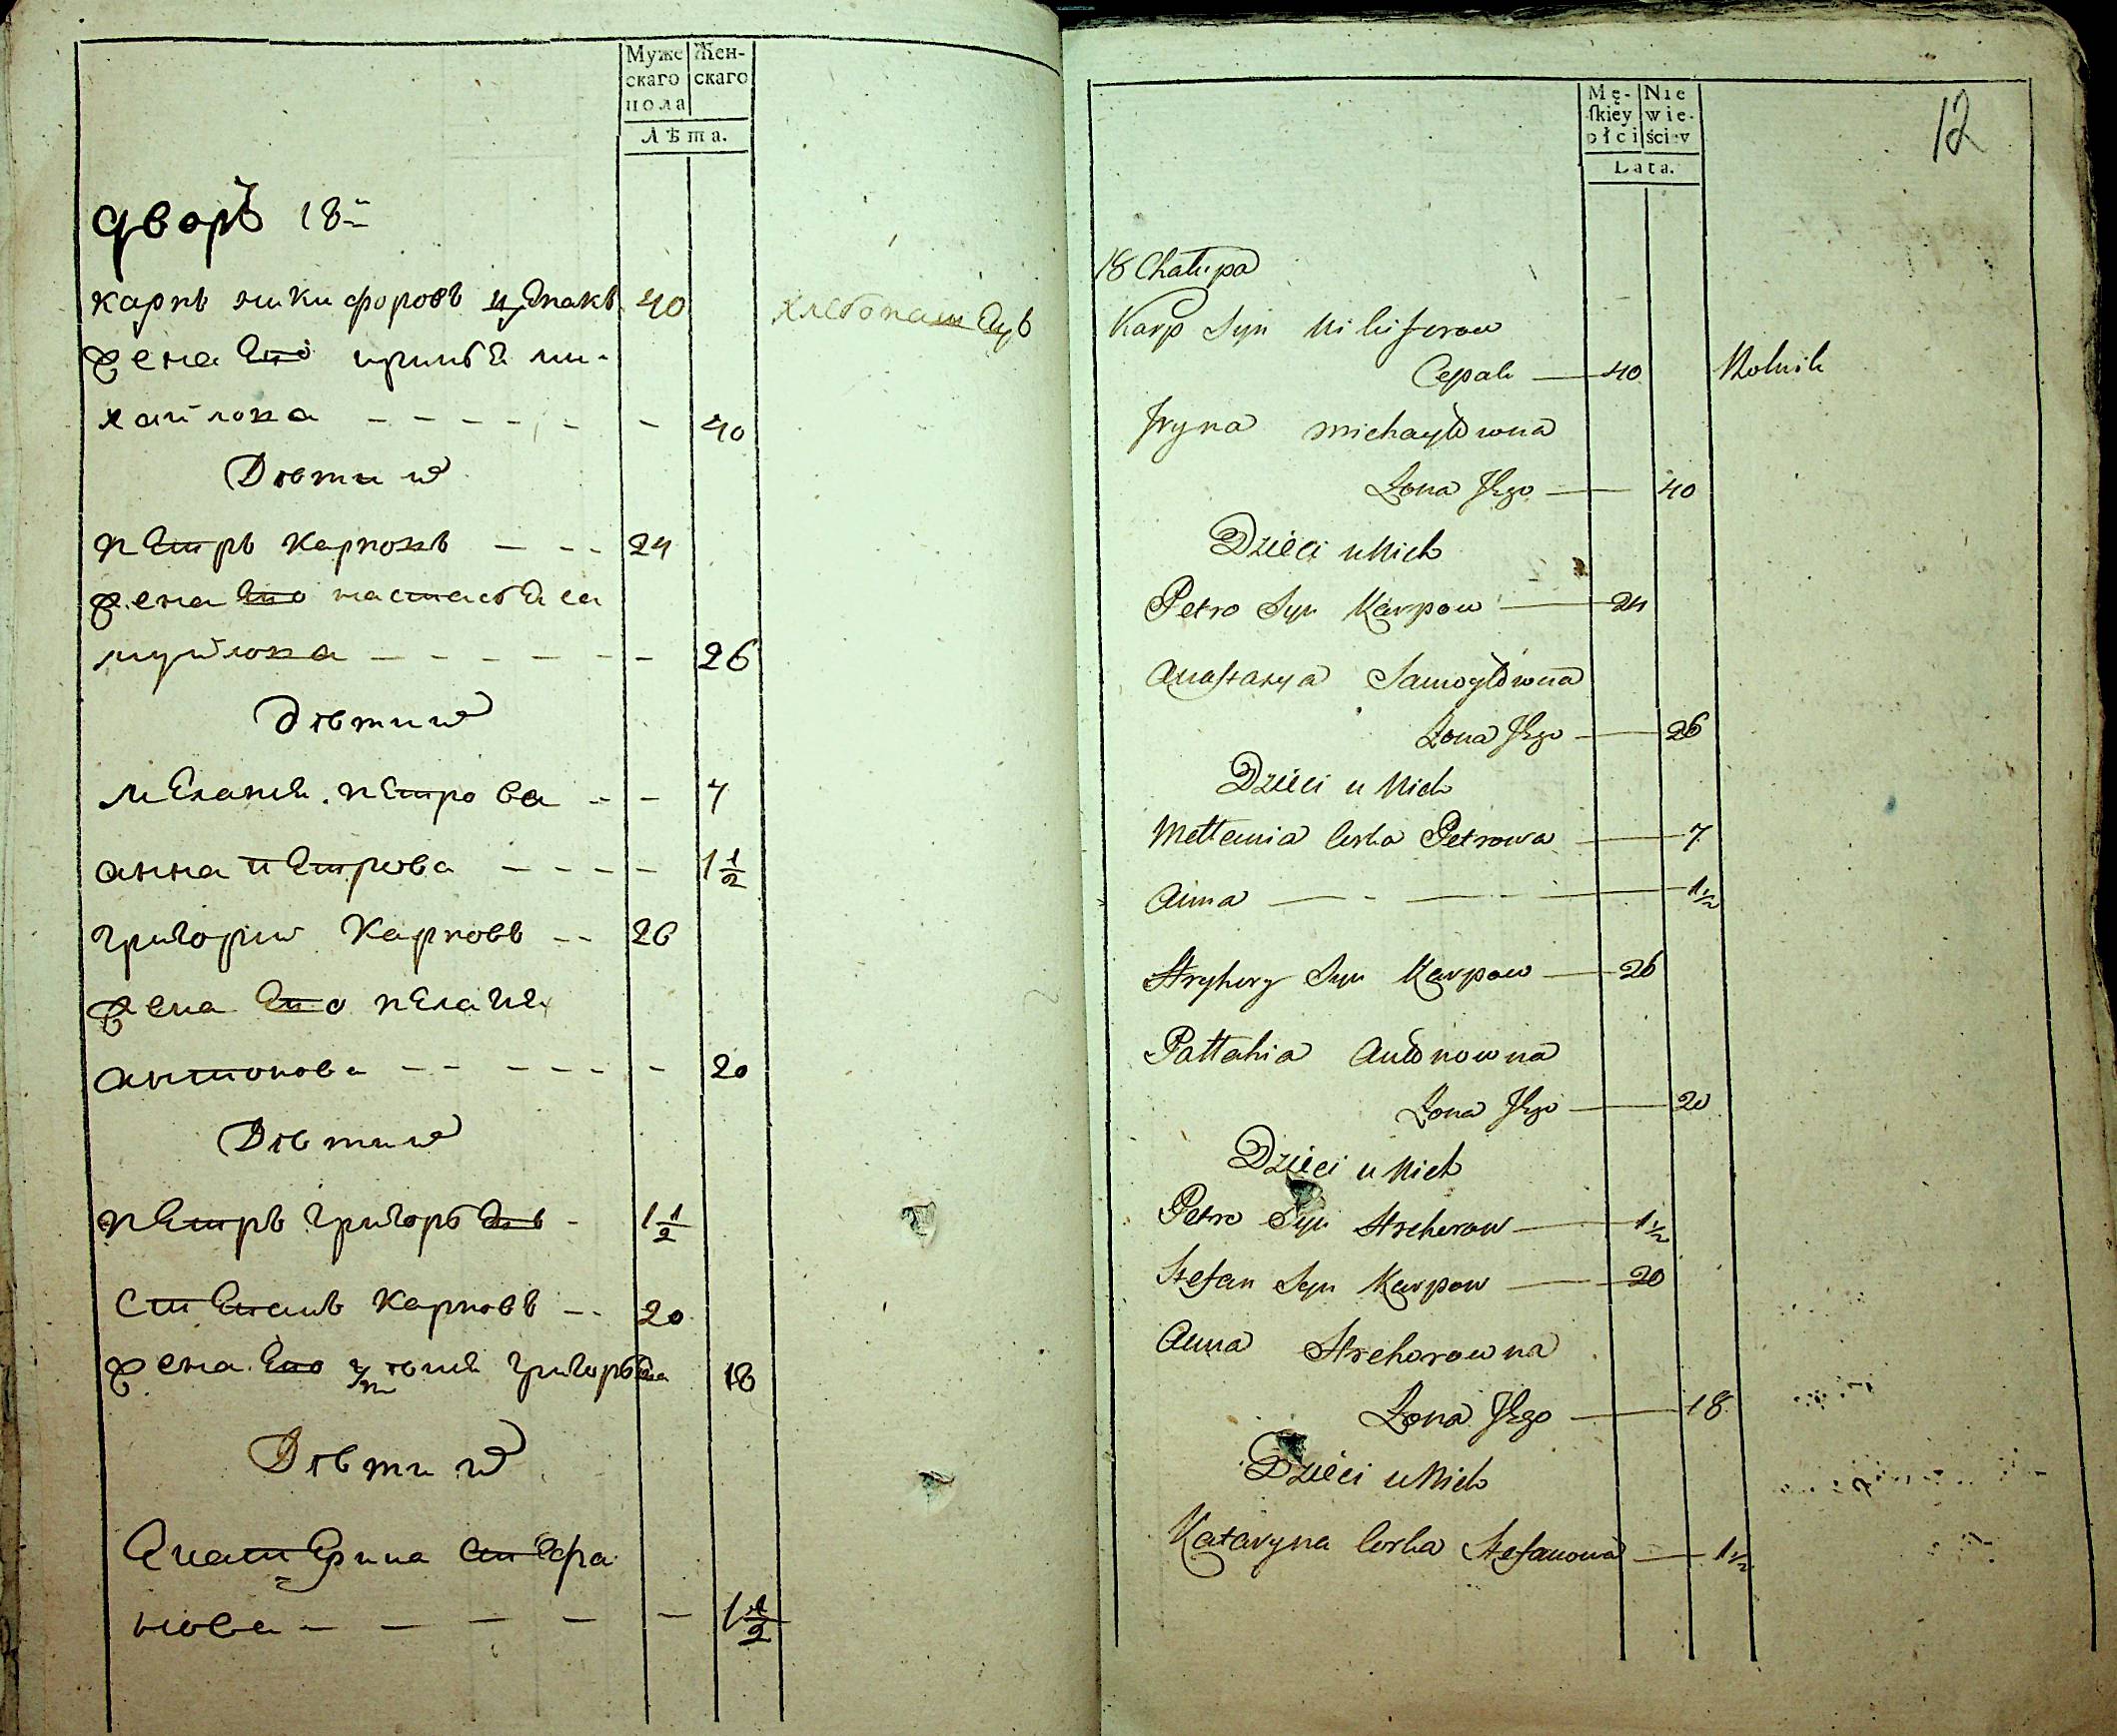 Муже Жен-
скаго скаго
пола
Лѣта.
дворъ 18й
карпъ никифоровъ цепакъ 40 хлебопашецъ
жена его ирина ми-
хайлова - - - - - - 40
Дѣти их
петръ карповъ - - - 24
жена его настасья са
муйлова - - - - - - 26
дѣти их
Мелания петрова - - 7
анна петрова - - - - 1 1/2
григории Карповъ - - 26
жена его пелагия
антонова - - - - - - 20
Дѣти их
петръ григорьевъ - 1 1/2
степанъ Карповъ - - 20
жена его григорьева 18
Дѣти их
екатерина стефа
нова - - - - - 1 1/2
12
Mę- Nie
ſkiey wie-
płci ściey
Lata.
18 Chałupa
Karp Syn Nikiforow
Cepak — 40 Rolnik
Jryna Michayłowna
Żona Jego — 40
Dzieci u Nich
Petro Syn Karpow — 24
Anastazya Samoyłowna
Żona Jego — 26
Dzieci u Nich
Mettania Corka Petrowa — 7
Anna — - — - — 1 1/2
Hryhory Syn Karpow — 26
Pattahia Antonowna
Żona Jego — 20
Dzieci u Nich
Petro Syn Hrehorow — 1 1/2
Stefan Syn Karpow — 20
Anna Hrehorowna
Żona Jego — 18
Dzieci u Nich
Kataryna Corka Stefanowa — 1 1/2